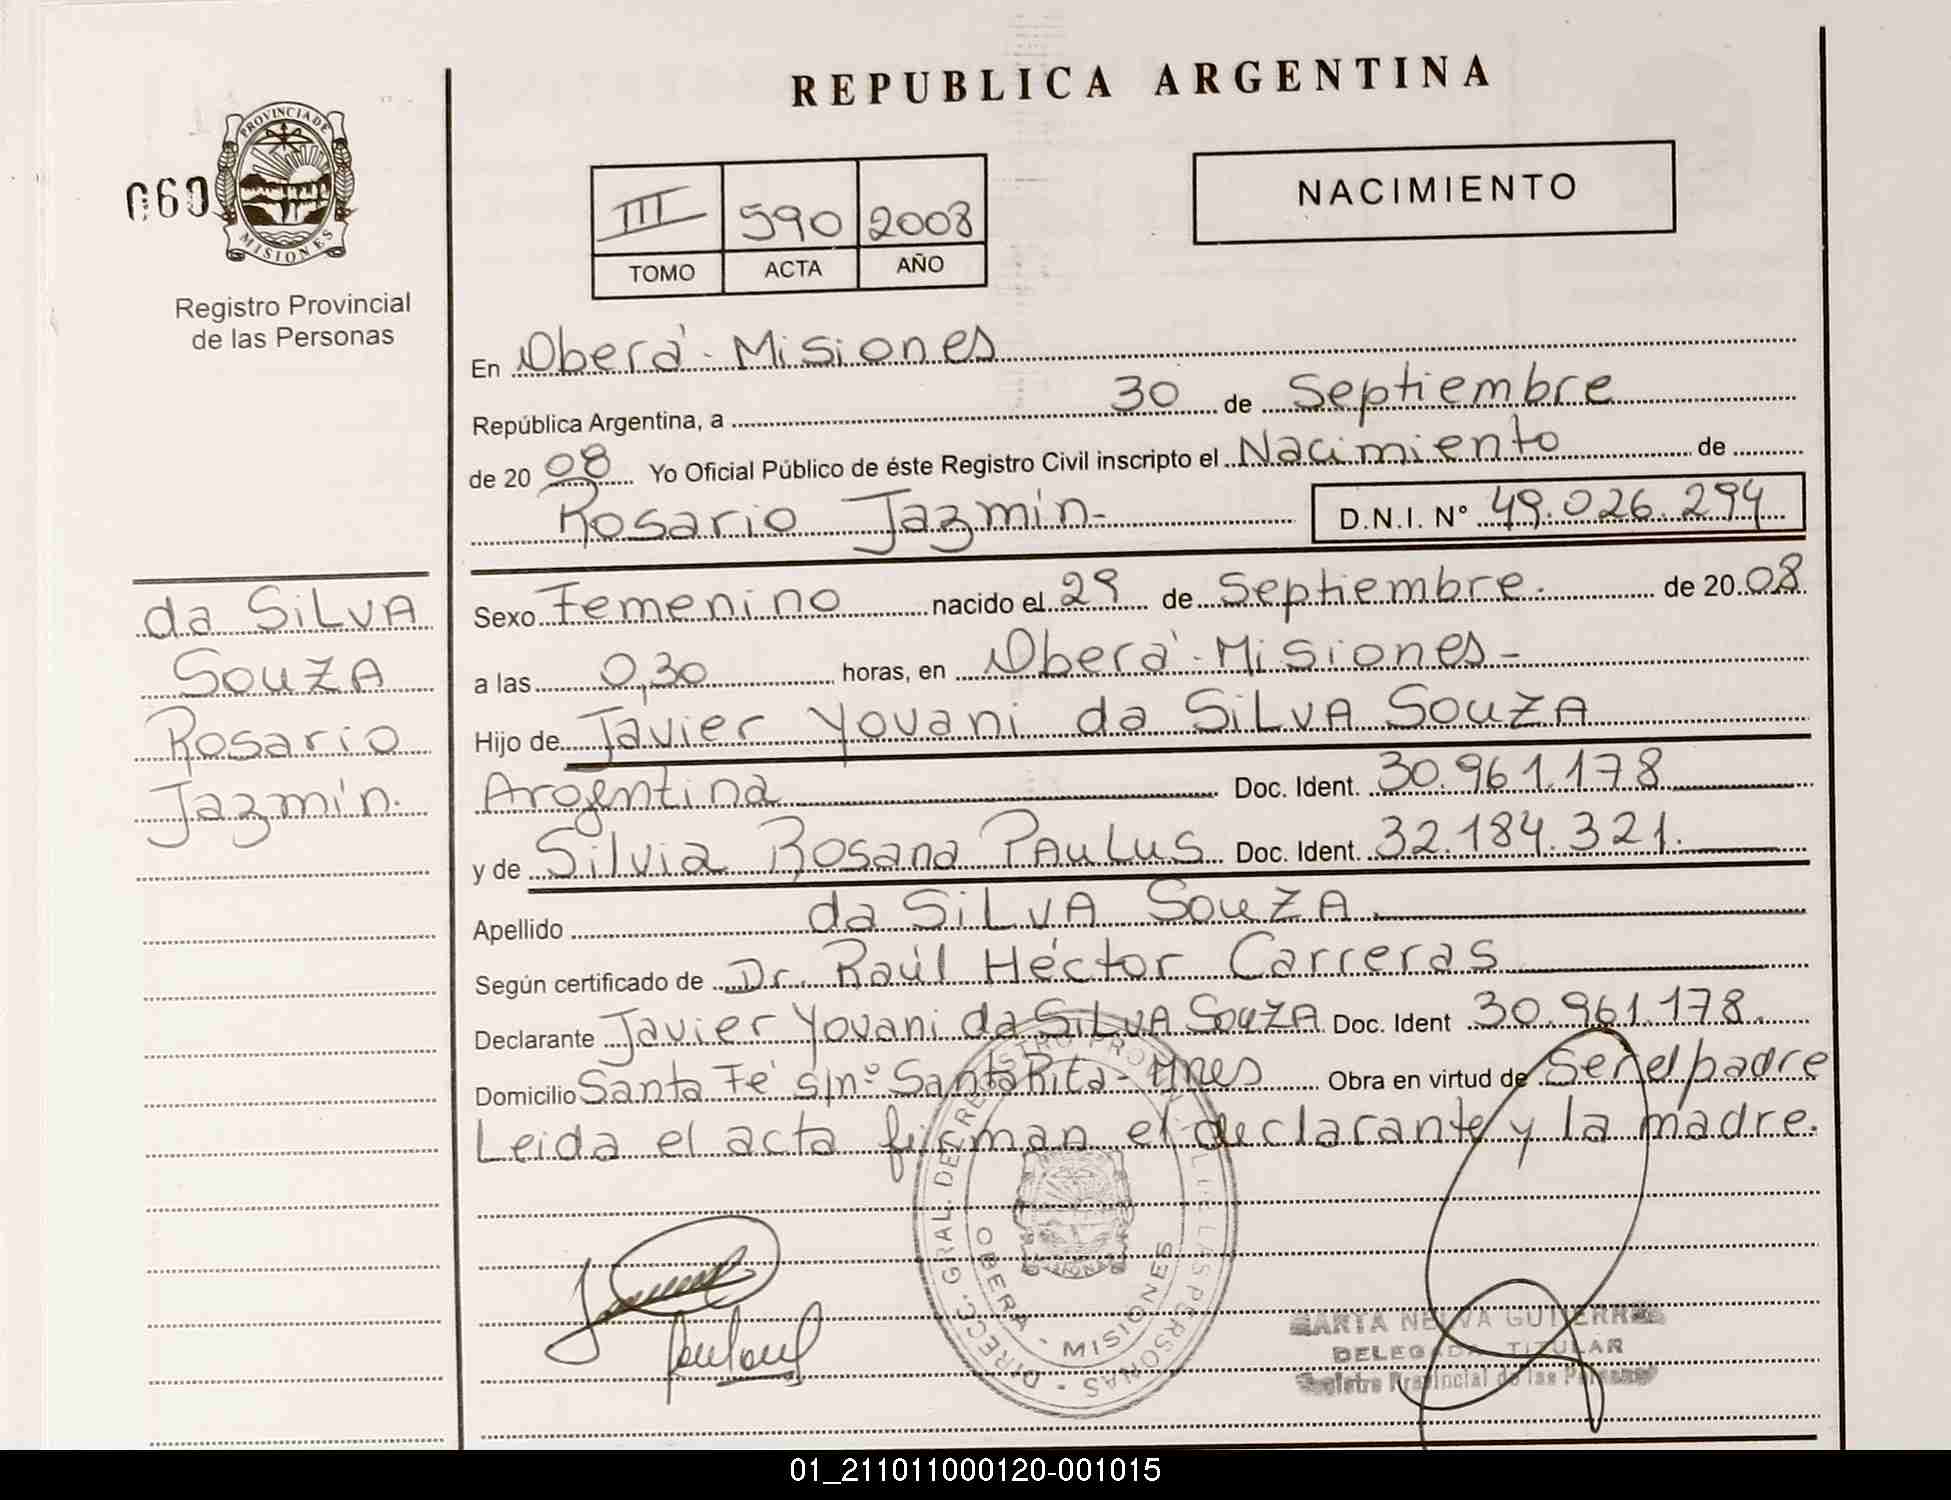 REPUBLICA ARGENTINA
060
PROVINCIA DE MISIONES
Registro Provincial
de las Personas
III 590 2008
TOMO ACTA AÑO
NACIMIENTO
En Oberá - Misiones
República Argentina, a 30 de Septiembre
de 20 08 Yo Oficial Público de éste Registro Civil inscripto el Nacimiento de
Rosario Jazmín- D.N.I. N° 49.026.294
da SiLVA
SouZA
Rosario
Jazmín.
Sexo Femenino nacido el 29 de Septiembre. de 20 08
a las 0,30 horas, en Oberá - Misiones -
Hijo de Javier Yovani da SiLVA SouZA
Argentina Doc. Ident. 30.961.178
y de Silvia Rosana PAuLuS Doc. Ident. 32.184.321.
Apellido da SiLVA SouZA
Según certificado de Dr. Raúl Héctor Carreras
Declarante Javier Yovani da SiLVA SouZA Doc. Ident 30.961.178.
Domicilio Santa Fé s/n° Santa Rita - Mnes Obra en virtud de Ser el padre
Leida el acta firman el declarante y la madre.
DIRECC. GRAL. DE REGISTRO PROVINCIAL DE LAS PERSONAS
OBERA - MISIONES
MARTA NELVA GUTIERREZ
DELEGADA TITULAR
Registro Provincial de las Personas
01_211011000120-001015